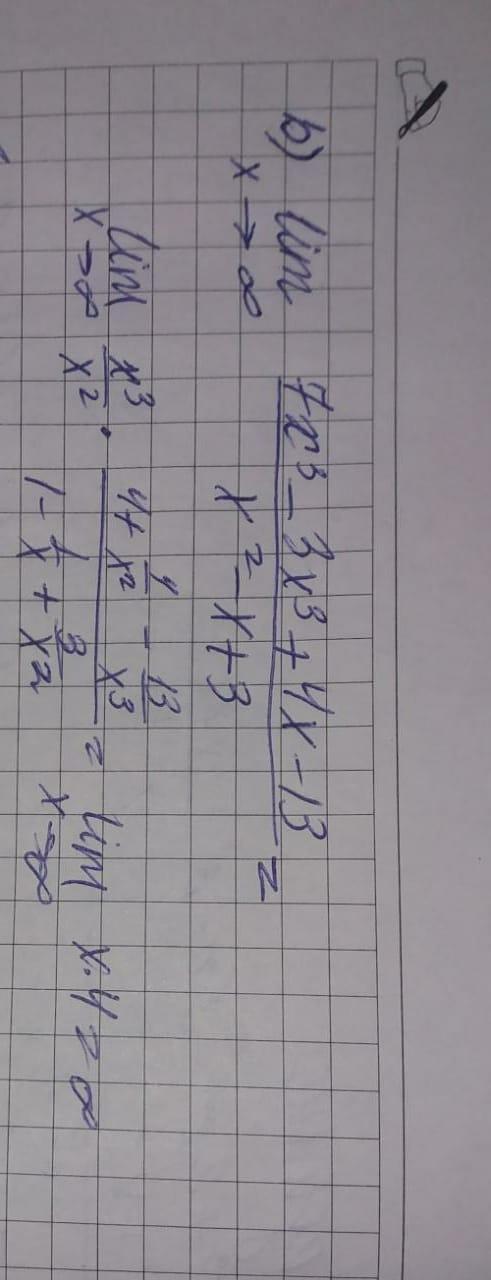 b) lim x→∞ (7x³ - 3x³ + 4x - 13)/(x² - x + 3) =
lim x→∞ x³/x² · (4 + 4/x² - 13/x³)/(1 - 1/x + 3/x²) = lim x→∞ x·4 = ∞